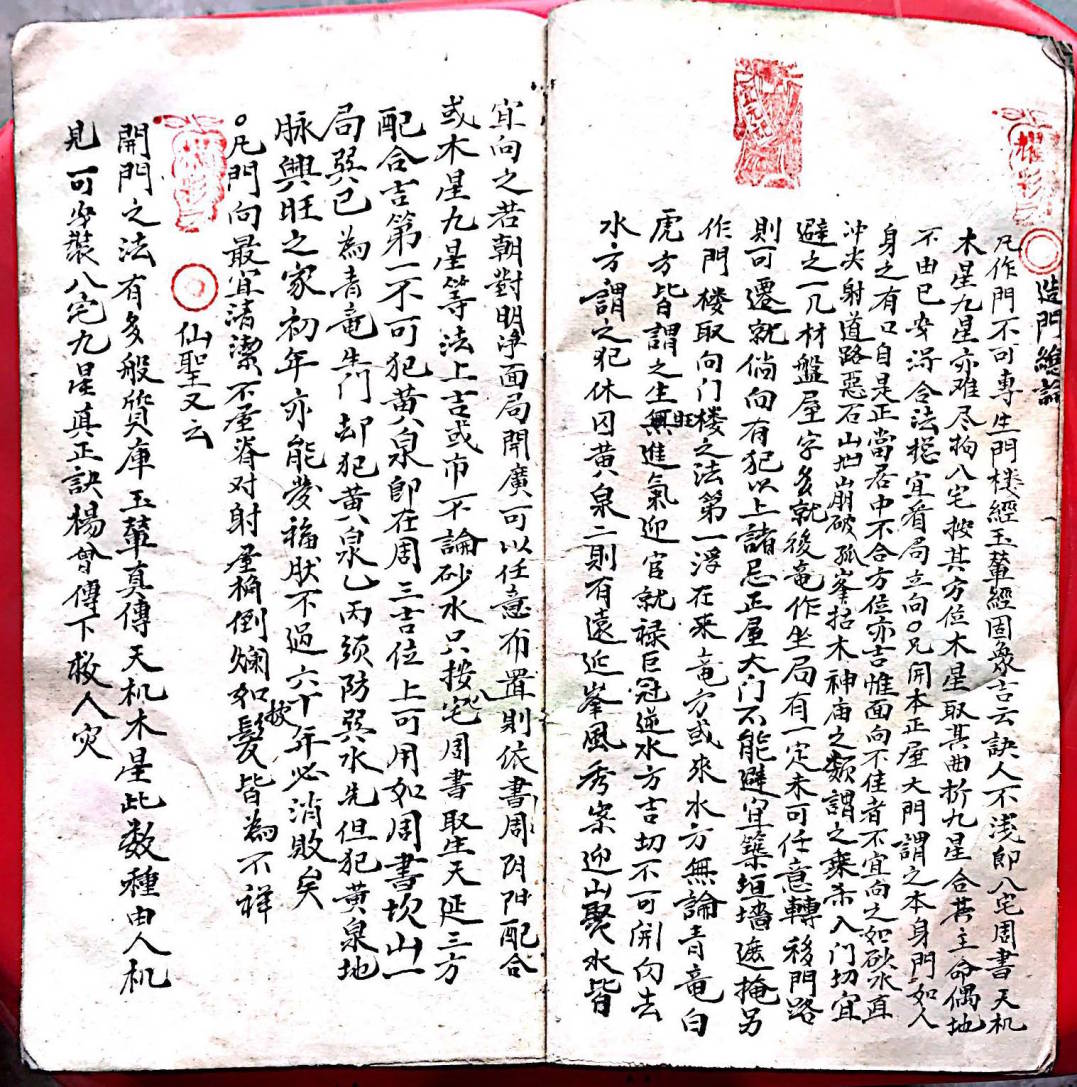 造門總論
凡作門不可專生門楼經玉輦經固衆言云訣人不浅即八宅周書天机
木星九星亦难尽拘八宅按其方位木星取其曲折九星合其主命偶地
不由已安淂合法総宜看局立向○凡開本正屋大門謂之本身門如人
身之有口自是正當居中不合方位亦吉惟面向不佳者不宜向之如砂水直
冲尖射道路惡石山凹崩破孤峯枯木神庙之類謂之乘杀入门切宜
避之一凡材盤屋字多就後竜作坐局有一定未可任意轉移門路
則可遷就倘向有犯以上諸忌正屋大门不能避宜築垣墻遮掩另
作門楼取向门楼之法第一浮在来竜方或来水方無論青竜白
虎方皆謂之生旺進氣迎官就禄巨冠逆水方吉切不可開向去
水方謂之犯休囚黄泉二則有遠近峯風秀案迎山聚水皆
宜向之若朝對明浄面局開廣可以任意布置則依書周阴阳配合
或木星九星等法上吉或巾不論砂水只按八宅周書取生天延三方
配合吉第一不可犯黄泉即在周三吉位上可用如周書坎山一
局巽巳為青竜生门却犯黄泉乙丙须防巽水先但犯黄泉地
脉興旺之家初年亦能發福肰不過六十年必消敗矣
○凡門向最宜清潔不屋脊对射屋桷倒爛如披髮皆為不祥
仙聖又云
開門之法有多般質庫玉輦真傳天机木星此数種由人机
見可安裝八宅九星真正訣楊曾傳下救人灾